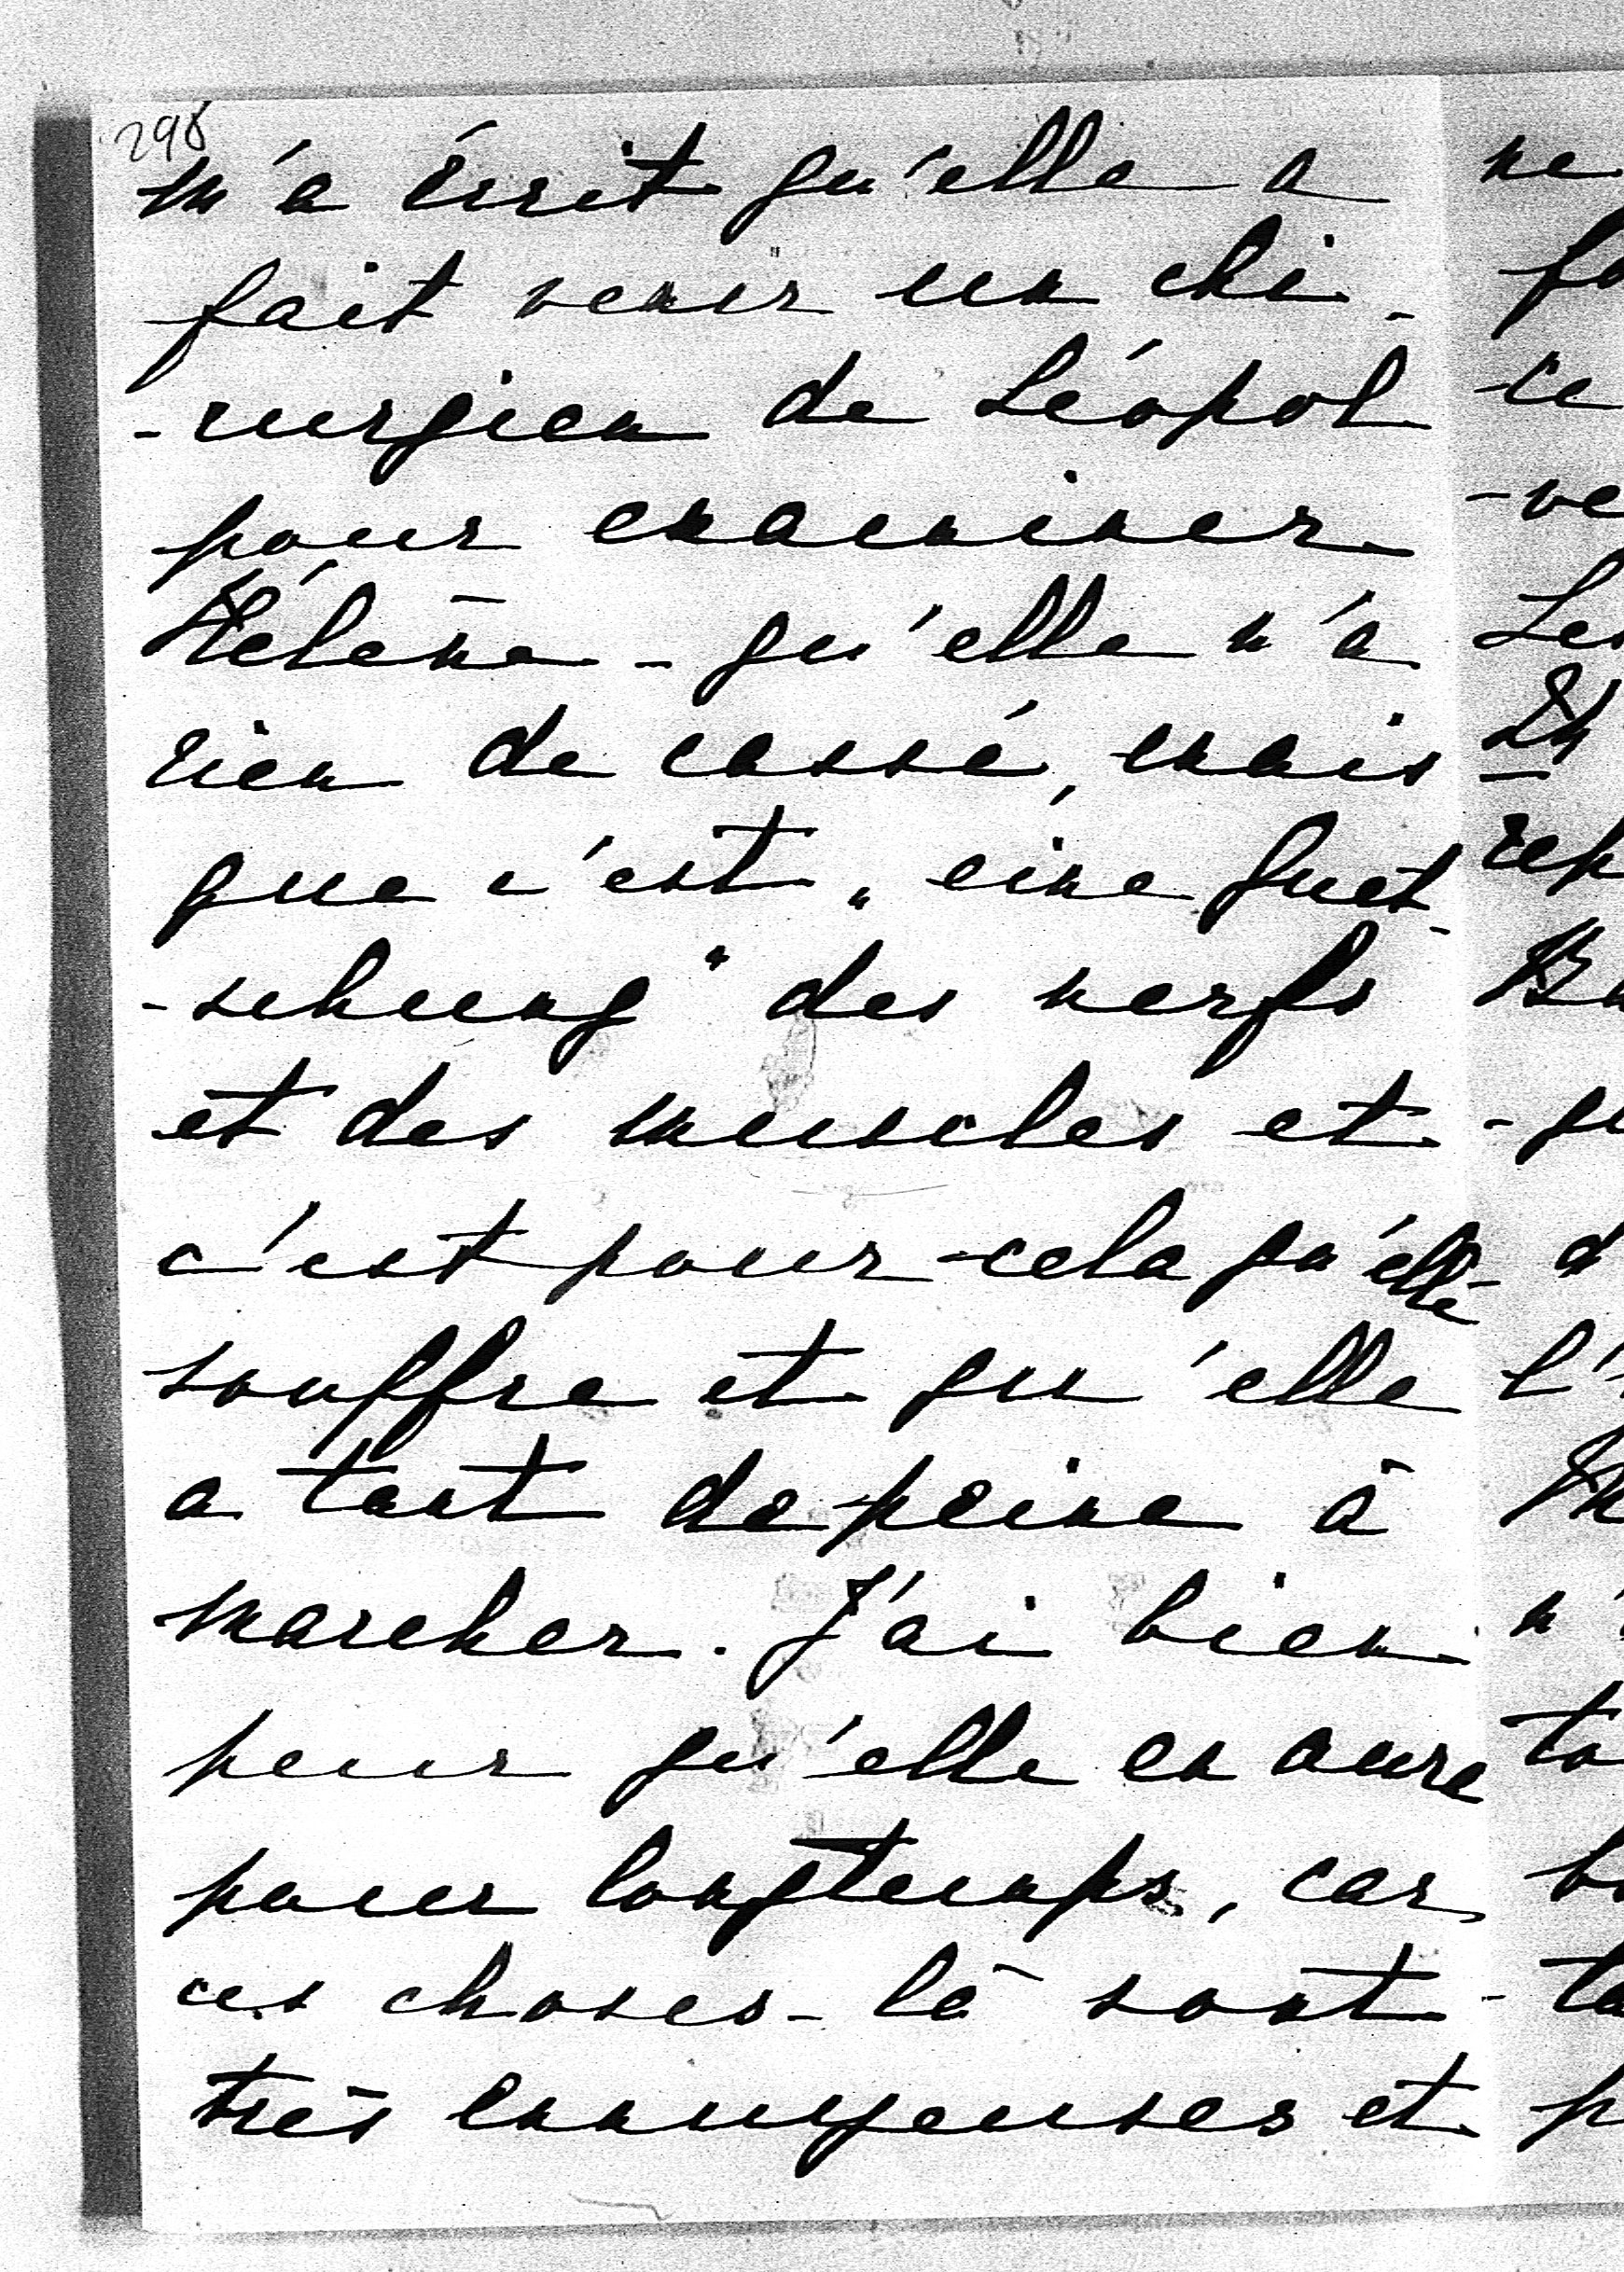 298
m'a écrit qu'elle a
fait venir un chi-
-rurgien de Léopol
pour examiner
Hélène - qu'elle n'a
rien de cassé, mais
que c'est „eine Quet-
-schung" des nerfs
et des muscles et
c'est pour cela qu'elle
souffre et qu'elle
a tant de peine à
marcher. J'ai bien
peur qu'elle en aure
pour longtemps, car
ces choses-là sont
très ennuyeuses et